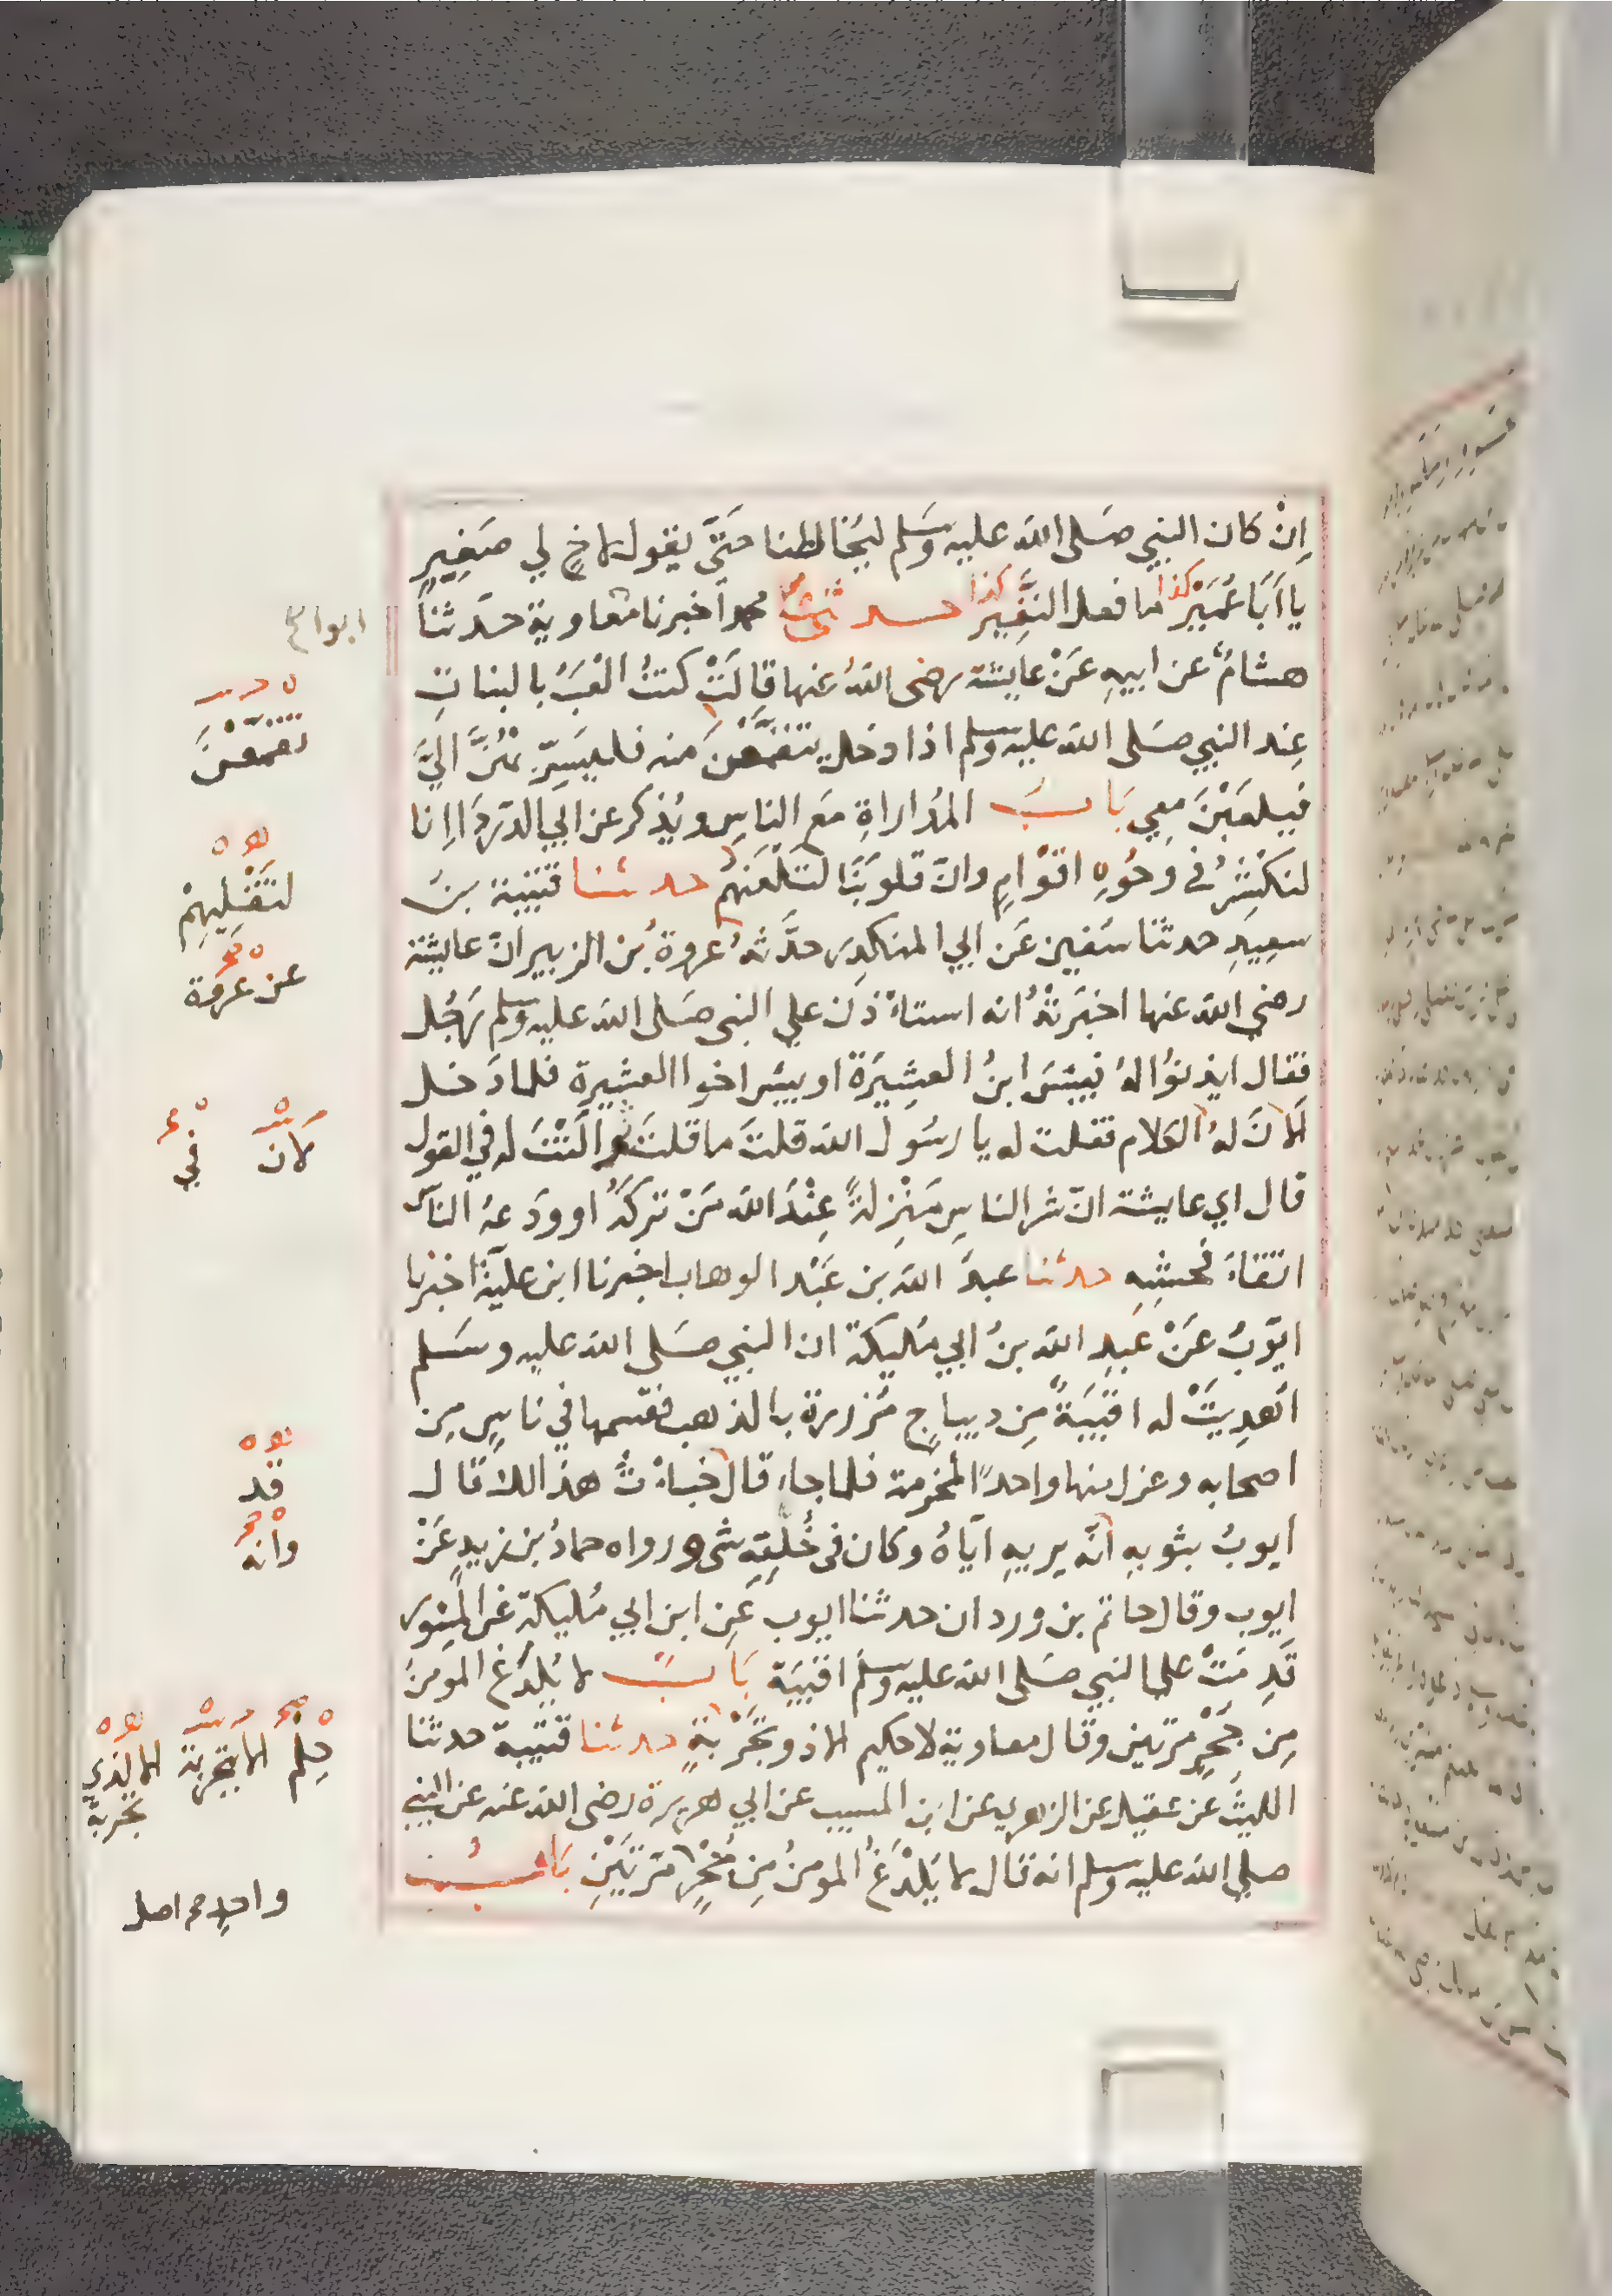 اِنْ كان النبي صَلى الله عليه وسَلم ليُخالطنا حَتَّى يقول لاخٍ لي صَغِيرٍ
يا اَبَا عُمَيْرْ كذا ما فعل النغَيْر كذا حدثنى محمد اخبرنا ابو معاوية حدثنا
هشامٌ عن ابيهِ عَنْ عايشة رضى اللهُ عنها قالَتْ كنتُ العَبُ بالبناتِ
عِند النبي صَلى الله عليه وسلم اذا دخل يتقَمَّعْنَ منه فليسَرِّبهُنَّ اليَّ
فيلعَبْنَ معِي بَابُ المُداراةِ مَع الناسِ ويُذكر عن ابي الدرداا انا
لنكْشِرُ في وجُوهِ اقوْامٍ وانّ قلوبَنَا لتلعَنهُمْ حدثنا قتيبة بن
سعِيدٍ حدثنا سُفين عَن ابي المنكدِر حدَّثهُ عروة بُن الزبير انّ عايشة
رضي الله عنها اخبَرتْهُ انه استاْذن علي النبى صَلى الله عليه وسلم رَجُل
فقال ايذنوُا لهُ فبيسَ ابنُ العشِيرَة او بيسَ اخوا العشيرة فلما دَخل
لَاَنَ لهُ الكلام فقلت له يا رسُول الله قلتَ ما قلتَ ثم اَلَنْتَ له في القول
قال اي عايشة انّ شر الناسِ مَنْزِلةً عِنْدَ الله مَنْ تركهُ او ودَعهُ الناس
اتقاءَ فحشِهِ حدثنا عبدُ الله بن عَبْد الوهاب اخبرنا ابن عليّة اخبرنا
ايّوبُ عَنْ عَبدِ الله بنُ ابي مُليكة ان النبي صَلى الله عليه وسَلم
اُهدِيتَْ له اقبَيَةٌ مِن ديباجٍ مُزررة بالذهب فقسمها في ناسٍ مِن
اصحابه وعزل منها واحدًا لمخرمة فلما جاء قال خبأتُ هذا لك قال
ايوبُ بثوبهِ انَّه يريهِ ايّاهُ وكان في خُلُقِهِ شىء ورواه حمادُ بن زيدٍ عَنْ
ايوب وقال حاتم بن وردان حدثنا ايوب عَنِ ابن ابي مُليكة عن المِسْوَر
قَدِمَتْ على النبي صَلى الله عليه وسلم اقبيَة بَابُ لا يُلدَغ المومنُ
مِن جُحْرٍ مرتين وقال معاوية لا حكيم الا ذو تجَرْبةٍ حدثنا قتيبة حدثنا
الليثُ عن عقيل عن الزهري عن ابن المسيب عن ابي هريرة رضى الله عنه عن النبي
صلي الله عليه وسلم انه قال لا يُلْدَغُ المومنُ مِن جُحْرٍ مَرتَيْنِ بَابُ
ابوا
لتَقْلِيهِمْ
عن عروة
لان في
قد
وانه
حِلم الا بتجربة الا لذي
تجربة
واحدٍ اصل